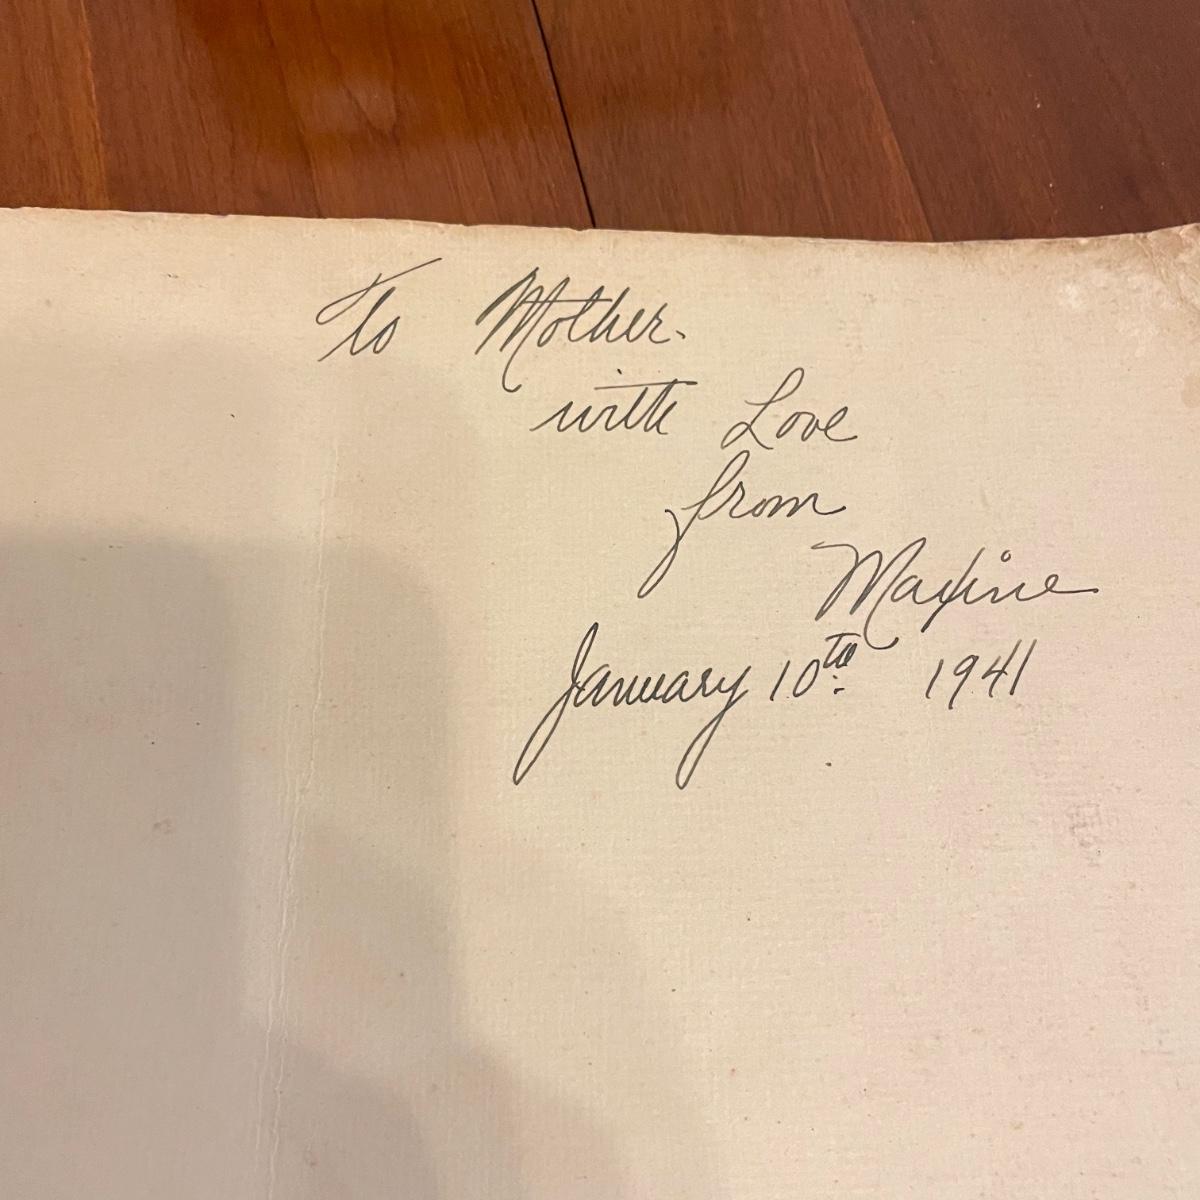 To Mother.
with Love
from
Maxine
January 10th. 1941